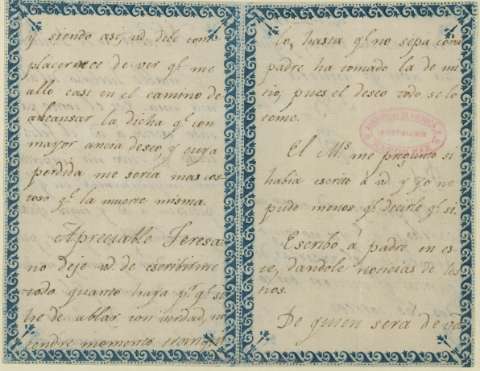 y siendo asi, ud. debe com
placerrece de ver qe. me
allo casi en el camino de
alcansar la dicha qe. con
mayor ancia deseo y cuya
perdida me seria mas cos
toso qe. la muerte misma.
Apreciable Teresa
no deje ud. de escribirme
todo quanto haya pr. qe. si
he de ablar con verdad, no
tendre momento
to, hasta qe. no sepa como
padre ha tomado la de mi
tio, pues el deseo todo se lo
come.
El Ms. me pregunto si
habia escrito à ud. y yo no
pude menos qe. decirle qe. si.
Escribo à padre en es
te, dandole noticias de
nos.
De quien sera de ud.